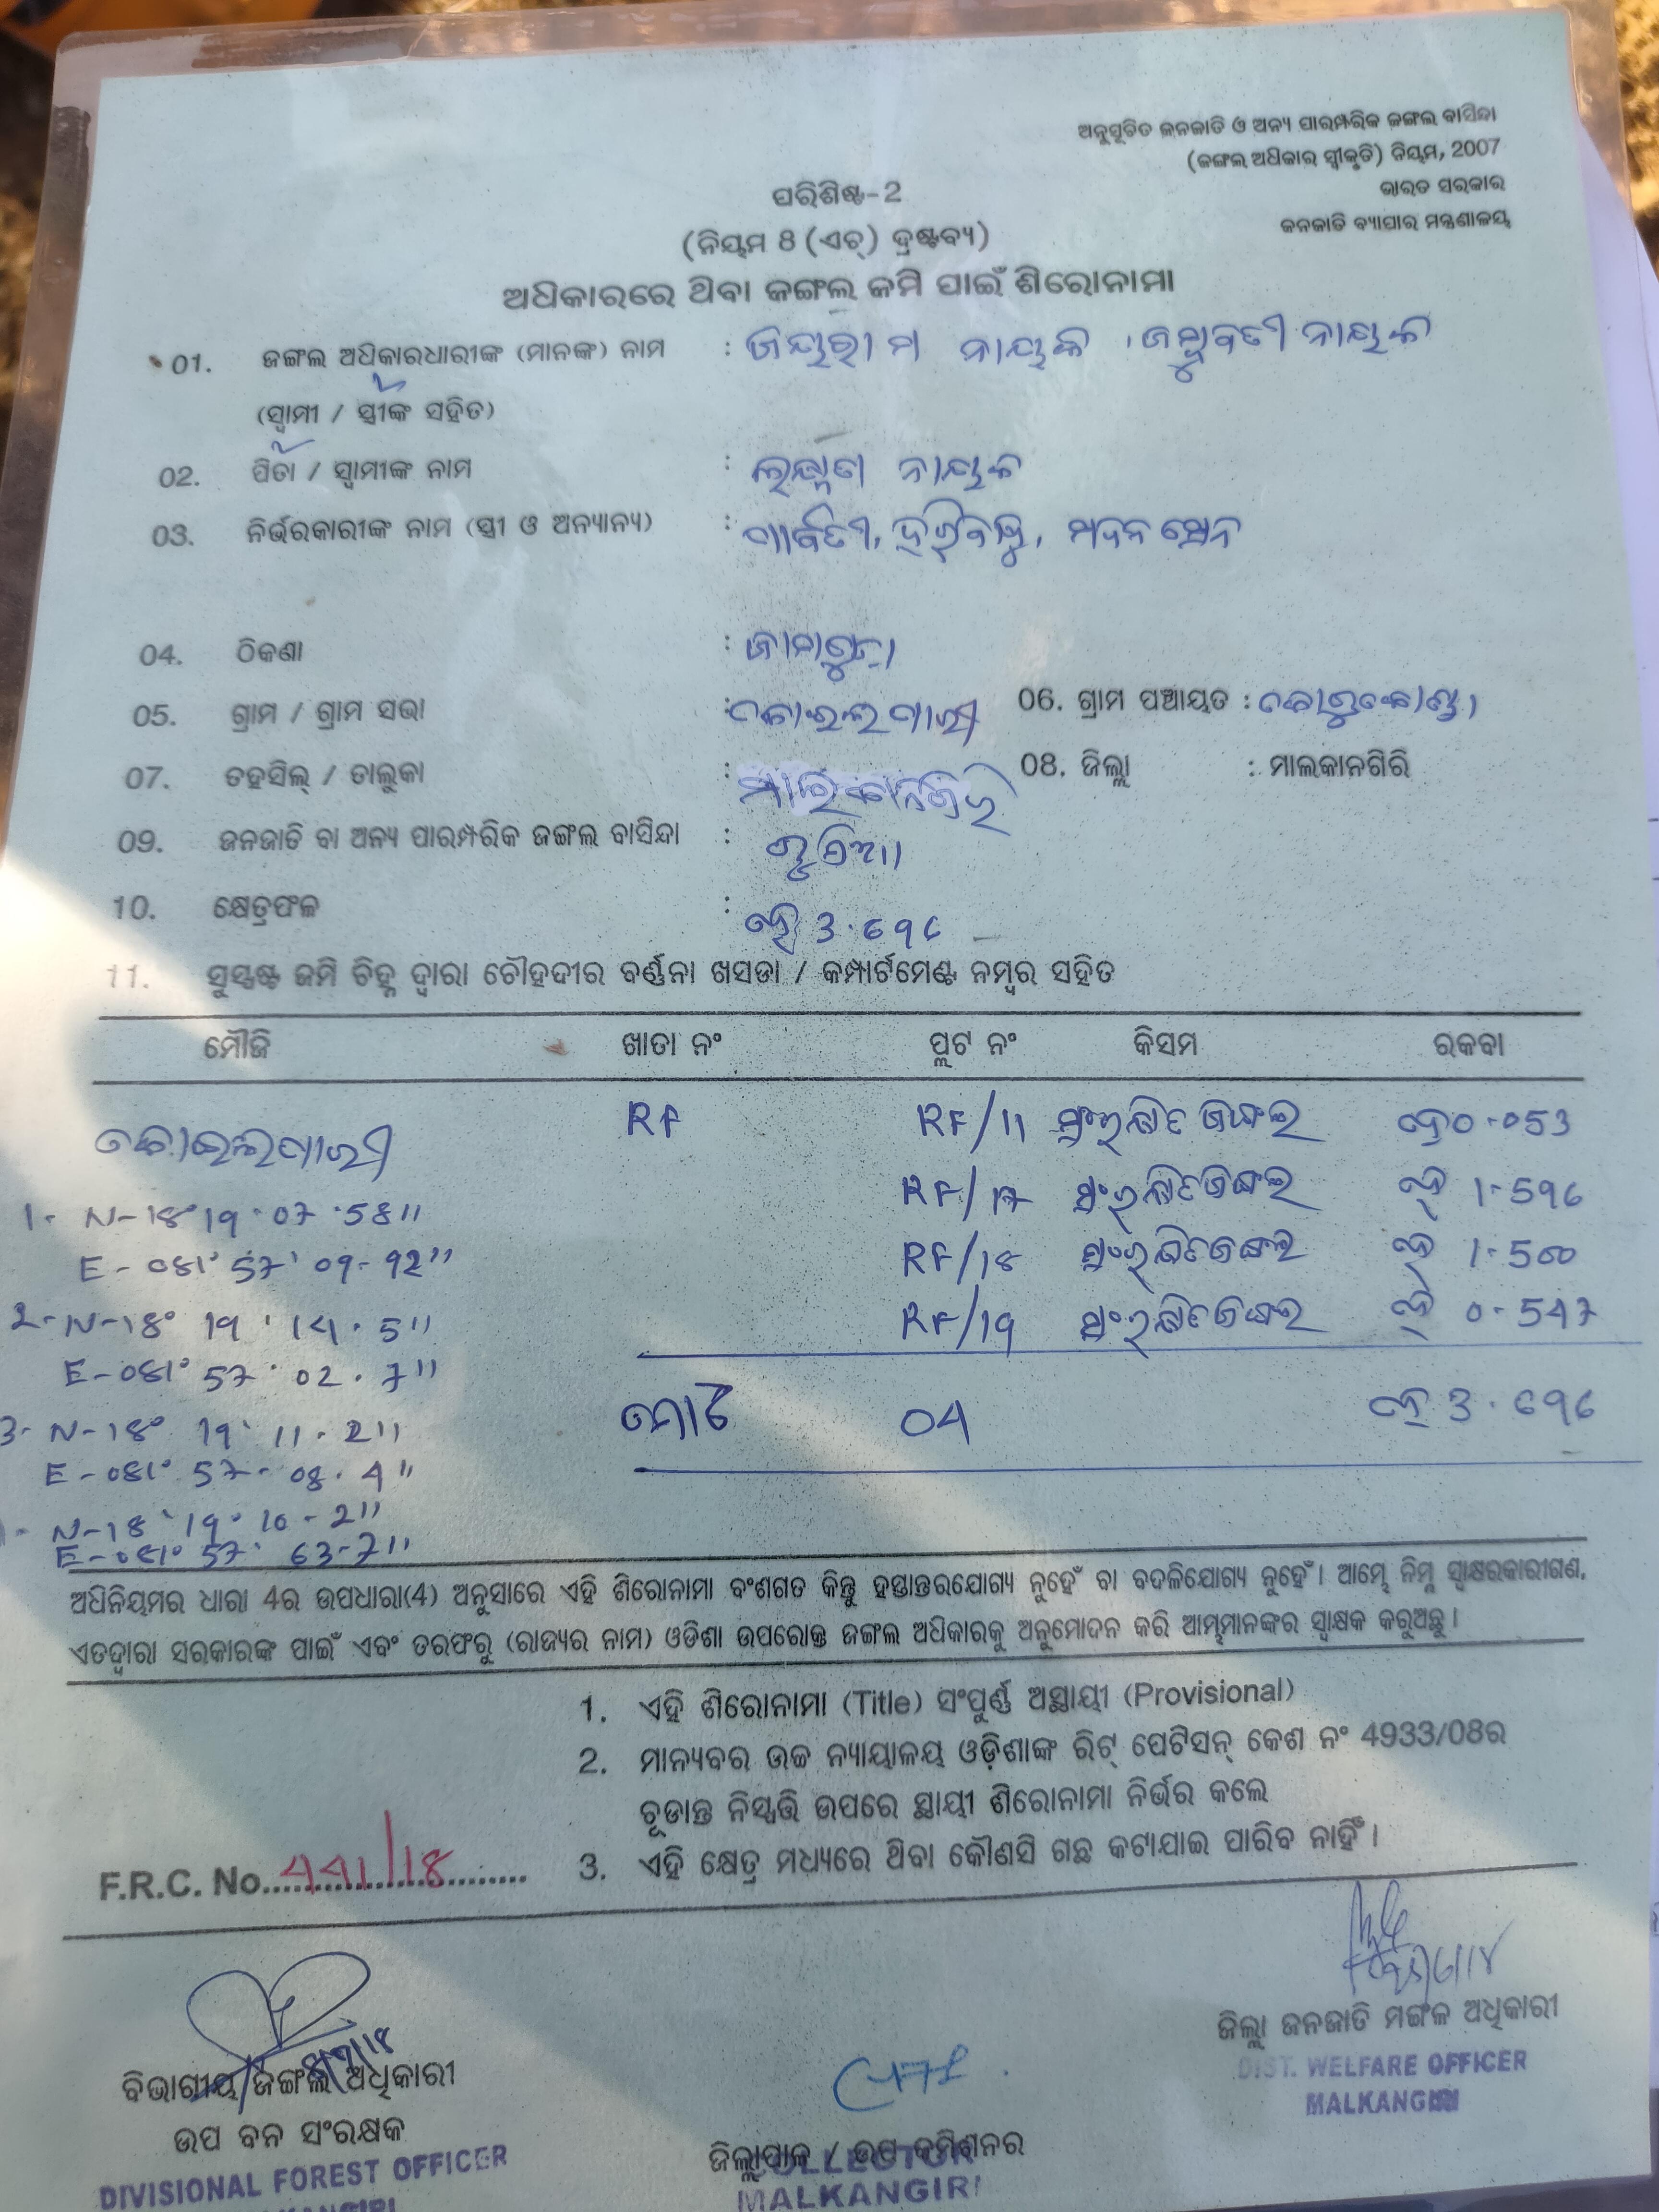 ଅନୁସୂଚିତ ଜନଜାତି ଓ ଅନ୍ୟ ପାରମ୍ପରିକ ଜଙ୍ଗଲ ବାସିନ୍ଦା
(ଜଙ୍ଗଲ ଅଧିକାର ସ୍ୱୀକୃତି) ନିୟମ, 2007
ଭାରତ ସରକାର
ଜନଜାତି ବ୍ୟାପାର ମନ୍ତ୍ରଣାଳୟ
ପରିଶିଷ୍ଟ-2
(ନିୟମ 8 (ଏଚ୍) ଦ୍ରଷ୍ଟବ୍ୟ)
ଅଧିକାରରେ ଥିବା ଜଙ୍ଗଲ ଜମି ପାଇଁ ଶିରୋନାମା
01. ଜଙ୍ଗଲ ଅଧିକାରଧାରୀଙ୍କ (ମାନଙ୍କ) ନାମ : ନାୟକ । ନାୟକ
(ସ୍ୱାମୀ / ସ୍ତ୍ରୀଙ୍କ ସହିତ)
02. ପିତା / ସ୍ୱାମୀଙ୍କ ନାମ : ନାୟକ
03. ନିର୍ଭରକାରୀଙ୍କ ନାମ (ସ୍ତ୍ରୀ ଓ ଅନ୍ୟାନ୍ୟ) : ପାର୍ବତୀ, ହରିବନ୍ଧୁ, ମଦନ ସେନ
04. ଠିକଣା :
05. ଗ୍ରାମ / ଗ୍ରାମ ସଭା : 06. ଗ୍ରାମ ପଞ୍ଚାୟତ :
07. ତହସିଲ୍ / ତାଲୁକା : ମାଲିକାନଗିରି 08. ଜିଲ୍ଲା : ମାଲକାନଗିରି
09. ଜନଜାତି ବା ଅନ୍ୟ ପାରମ୍ପରିକ ଜଙ୍ଗଲ ବାସିନ୍ଦା :
10. କ୍ଷେତ୍ରଫଳ : ହେ 3.୬୨୬
11. ସୁସ୍ପଷ୍ଟ ଜମି ଚିହ୍ନ ଦ୍ୱାରା ଚୌହଦୀର ବର୍ଣ୍ଣନା ଖସଡା / କମ୍ପାର୍ଟମେଣ୍ଟ ନମ୍ବର ସହିତ
ମୌଜି ଖାତା ନଂ ପ୍ଲଟ ନଂ କିସମ ରକବା
RF RF/11 ସଂରକ୍ଷିତ ଜଙ୍ଗଲ ହେ 0-053
1- N-18° 19' 07.58"
RF/17 ସଂରକ୍ଷିତ ଜଙ୍ଗଲ ହେ 1-596
E-081° 57' 09-92"
RF/18 ସଂରକ୍ଷିତ ଜଙ୍ଗଲ ହେ 1-500
2- N-18° 19' 14.5"
RF/19 ସଂରକ୍ଷିତ ଜଙ୍ଗଲ ହେ 0-547
E-081° 57' 02.7"
3- N-18° 19' 11.2"
ମୋଟ 04 ହେ 3.696
E-081° 57' 08.4"
N-18° 19' 10-2"
E-081° 57' 63-7"
ଅଧିନିୟମର ଧାରା 4ର ଉପଧାରା(4) ଅନୁସାରେ ଏହି ଶିରୋନାମା ବଂଶଗତ କିନ୍ତୁ ହସ୍ତାନ୍ତରଯୋଗ୍ୟ ନୁହେଁ ବା ବଦଳିଯୋଗ୍ୟ ନୁହେଁ। ଆମ୍ଭେ ନିମ୍ନ ସ୍ୱାକ୍ଷରକାରୀଗଣ,
ଏତଦ୍ୱାରା ସରକାରଙ୍କ ପାଇଁ ଏବଂ ତରଫରୁ (ରାଜ୍ୟର ନାମ) ଓଡିଶା ଉପରୋକ୍ତ ଜଙ୍ଗଲ ଅଧିକାରକୁ ଅନୁମୋଦନ କରି ଆମ୍ଭମାନଙ୍କର ସ୍ୱାକ୍ଷକ କରୁଅଛୁ।
1. ଏହି ଶିରୋନାମା (Title) ସଂପୂର୍ଣ୍ଣ ଅସ୍ଥାୟୀ (Provisional)
2. ମାନ୍ୟବର ଉଚ୍ଚ ନ୍ୟାୟାଳୟ ଓଡ଼ିଶାଙ୍କ ରିଟ୍ ପେଟିସନ୍ କେଶ ନଂ 4933/08ର
ଚୂଡାନ୍ତ ନିସ୍ପତ୍ତି ଉପରେ ସ୍ଥାୟୀ ଶିରୋନାମା ନିର୍ଭର କଲେ
3. ଏହି କ୍ଷେତ୍ର ମଧ୍ୟରେ ଥିବା କୌଣସି ଗଛ କଟାଯାଇ ପାରିବ ନାହିଁ।
F.R.C. No. 441/18
ଜିଲ୍ଲା ଜନଜାତି ମଙ୍ଗଳ ଅଧିକାରୀ
DIST. WELFARE OFFICER
MALKANGIRI
ବିଭାଗୀୟ ଜଙ୍ଗଲ ଅଧିକାରୀ
ଉପ ବନ ସଂରକ୍ଷକ
DIVISIONAL FOREST OFFICER
ଜିଲ୍ଲାପାଳ / ଉପ କମିଶନର
COLLECTOR
MALKANGIRI